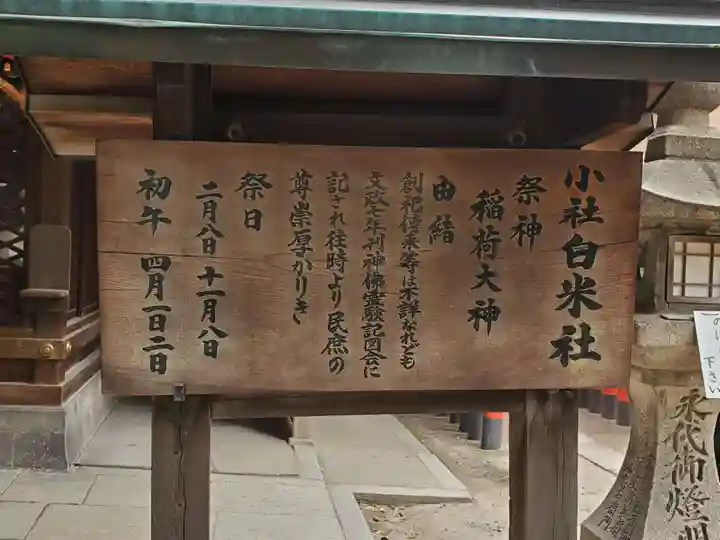 小社白米社
祭神
稲荷大神
由緒
創祀傳来等は不詳なれども
文政七年刊神佛霊験記図会に
記され往時より民庶の
尊崇厚かりき
祭日
二月八日 十一月八日
初午 四月一日二日
永代御燈明
下さい